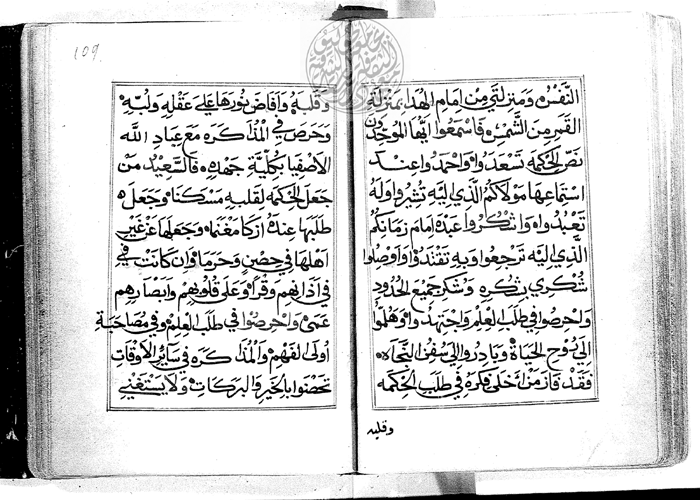 النفس ومنزلتي من امام الهدا بمنزلة
القمر من الشمس فاسمعوا ايها الموحدون
نص الحكمه تسعدوا واحمدوا عند
استماعها مولاكم الذي اليه تشيروا وله
تعبدوا واشكروا عبده امام زمانكم
الذي اليه ترجعوا وبه تقتدوا واوصلوا
شكري بشكره وشكر جميع الحدود
واحرصوا في طلب العلم واجتهدوا وهلموا
الى روح الحياة وبادروا الى سفن النجاه
فقد فاز من اخلى فكره في طلب الحكمه
وقلبه
109
وقلبه وافاض نورها على عقله ولبه
وحرص في المذاكره مع عباد الله
الاصفيا بكلية جهده فالسعيد من
جعل الحكمه لقلبه مسكنا وجعل
طلبها عنده ازكا مغنما وجعلها عن غير
اهلها في حصن وحرما وان كانت في
في اذانهم وقرا وعلى قلوبهم وابصارهم
عمى واحرصوا في طلب العلم وفي مصاحبة
اولى الفهم والمذاكره في سائر الاوقات
تحضوا بالخير والبركات ولا يستغني